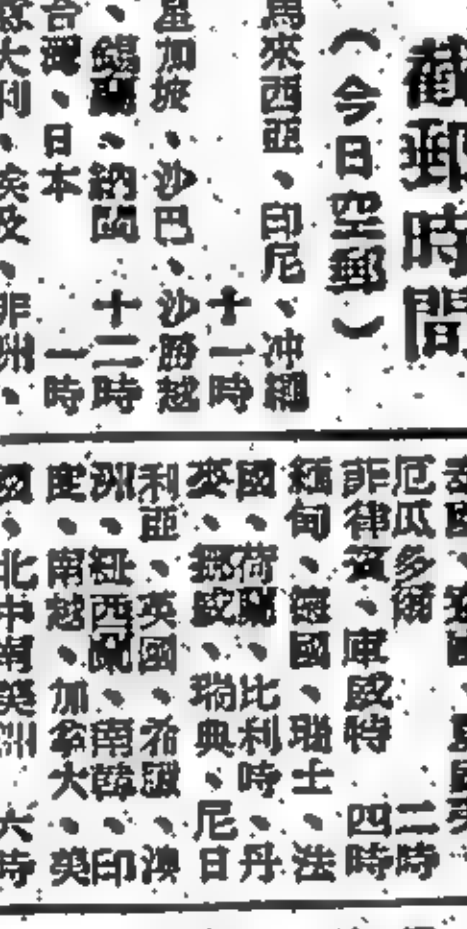 截郵時間
（今日空郵）
馬來西亞、印尼、冲繩
十一時
星加坡、沙巴、沙勝越
、錫蘭、納閩 十二時
台灣、日本 一時
意大利、埃及、非洲、
厄瓜多爾 二時
菲律賓、庫威特 四時
緬甸、德國、瑞士、法
國、荷蘭、比利時、丹
麥、挪威、瑞典、尼日
利亞、英國、希臘、澳
洲、紐西蘭、南韓、印
度、南越、加拿大、美
國、北中南美洲 六時